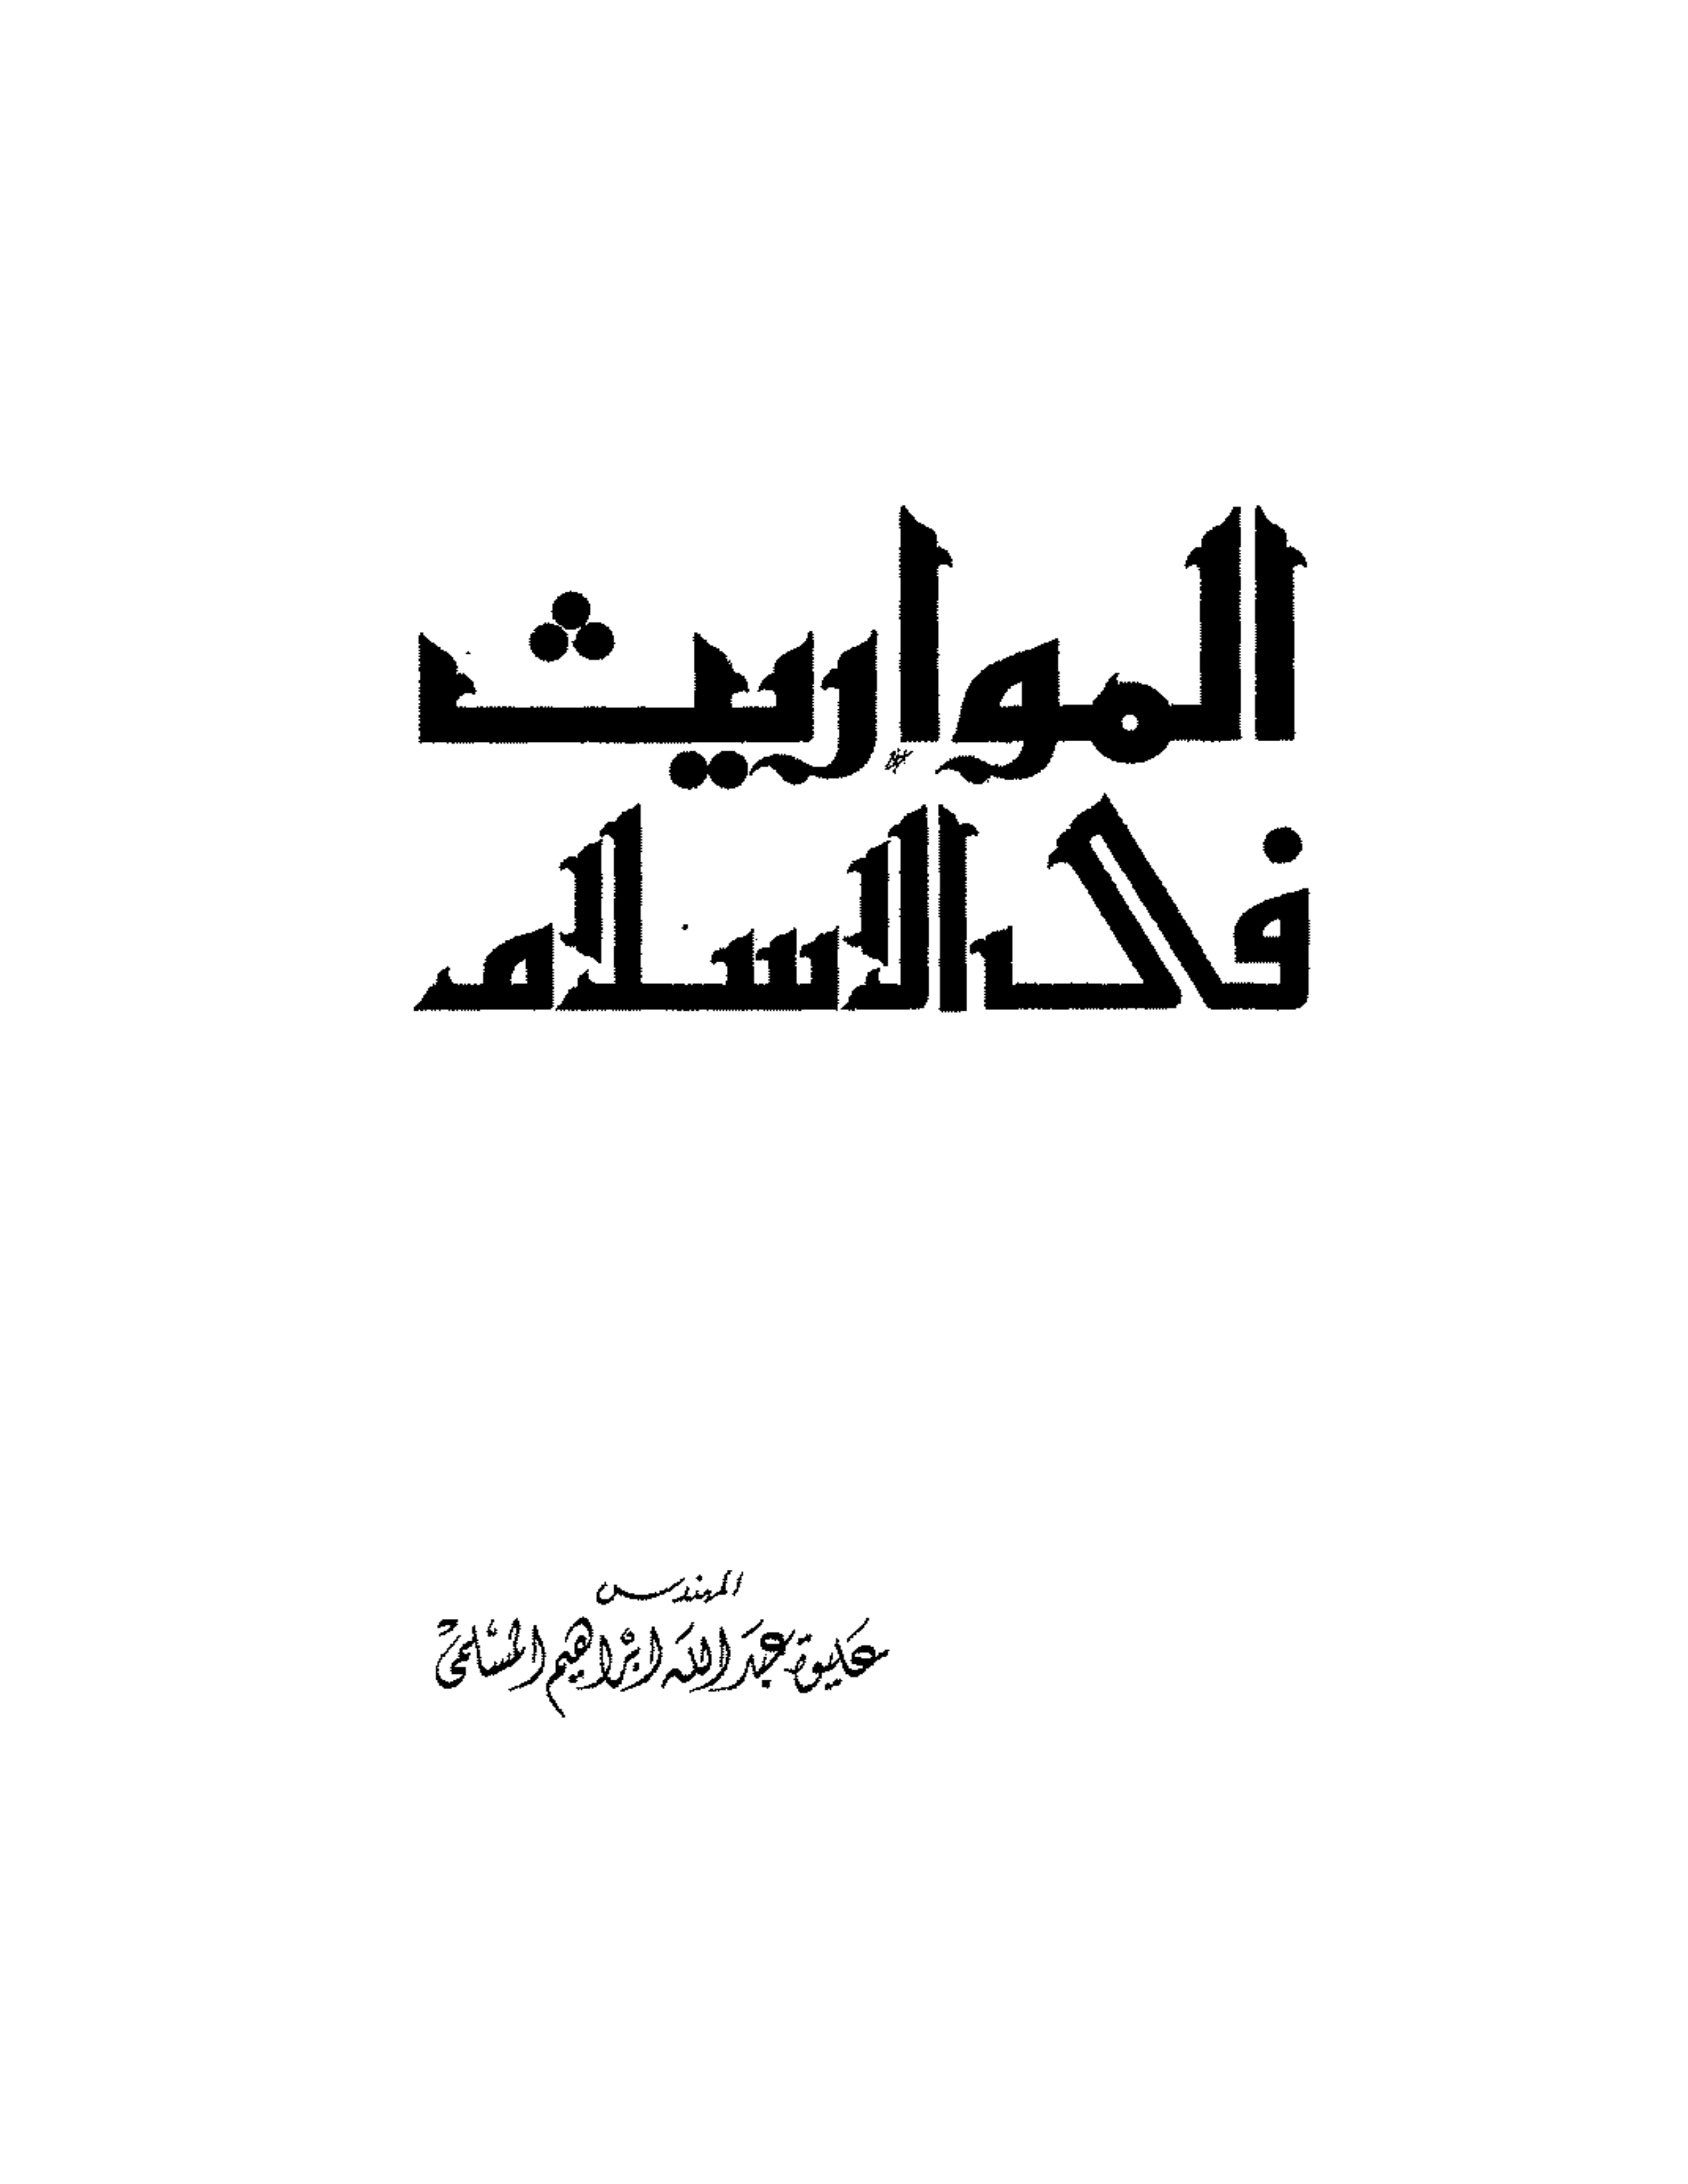 المواريث
فى الاسلام
المهندس
عليوة عبد الله ابراهيم